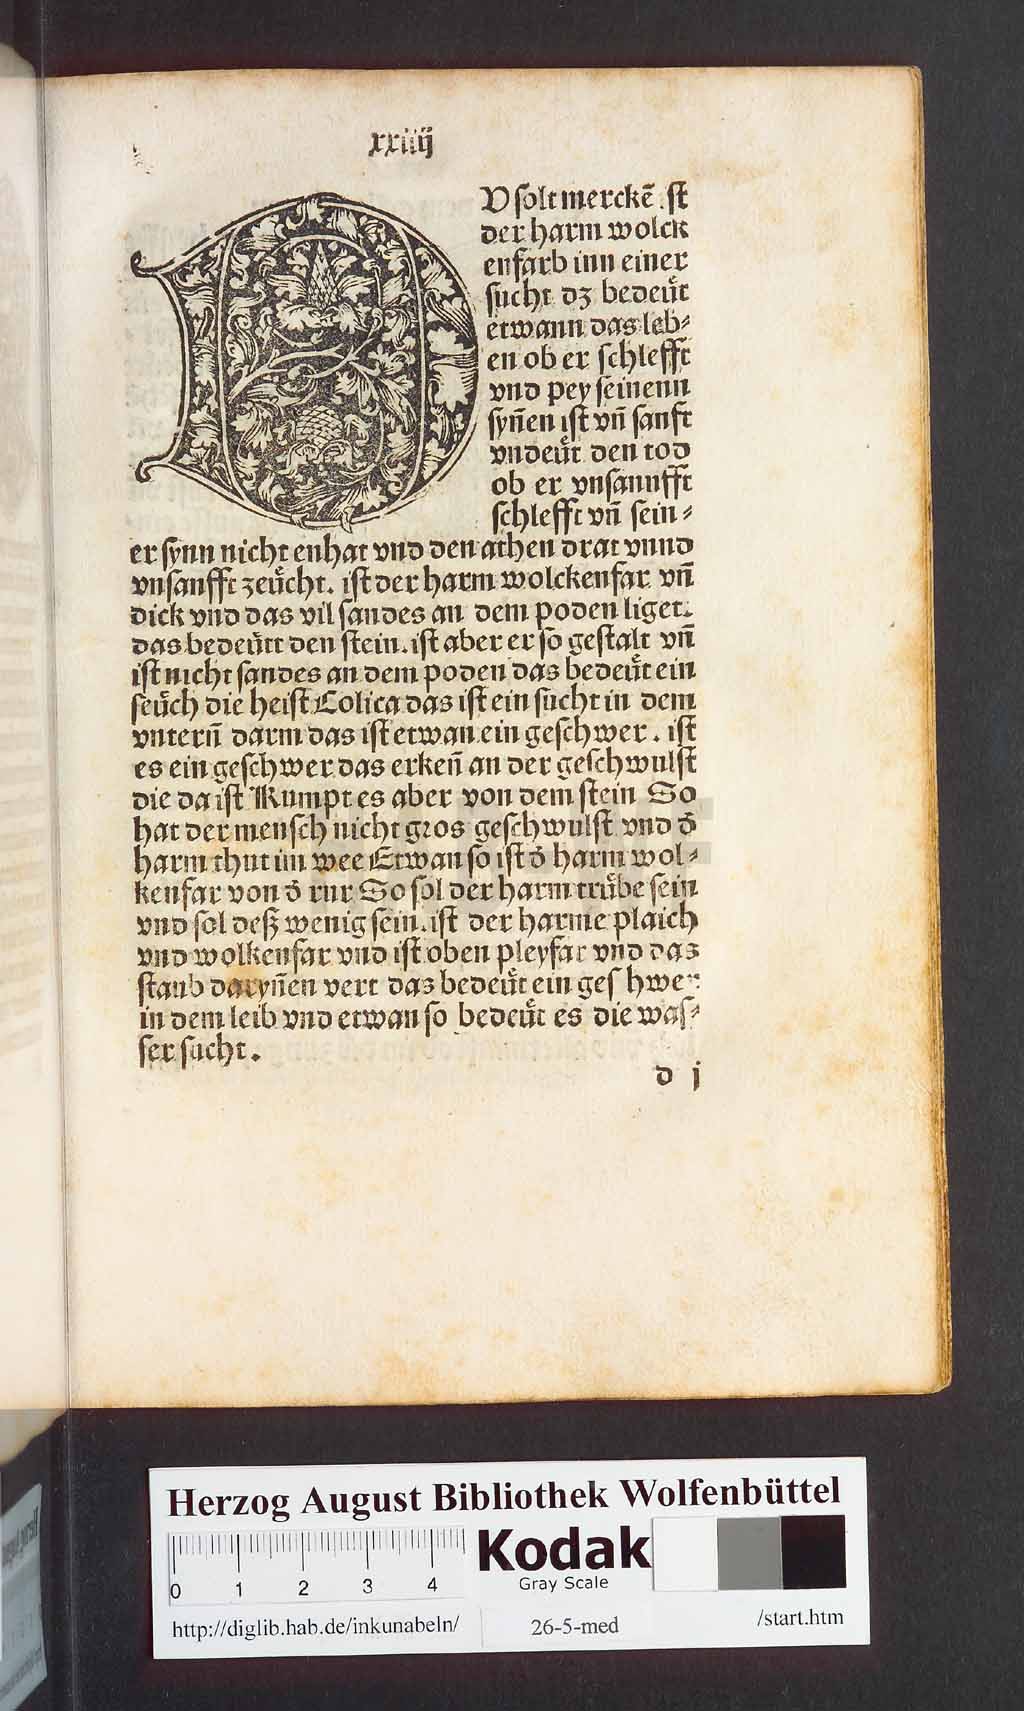 xxiiij
DV solt merckē. ist
der harm wolck
enfarb inn einer
sucht dz bedeüt
etwann das leb⸗
en ob er schlefft
vnd pey seinenn
syn̄en ist vn̄ sanft
vndeüt den tod
ob er vnsannfft
schlefft vn̄ sein⸗
er synn nicht enhat vnd den athen drat vnnd
vnsanfft zeücht. ist der harm wolckenfar vn̄
dick vnd das vil sandes an dem poden liget.
das bedeütt den stein. ist aber er so gestalt vn̄
ist nicht sandes an dem poden das bedeüt ein
seüch die heist Colica das ist ein sucht in dem
vntern̄ darm das ist etwan ein geschwer. ist
es ein geschwer das erken̄ an der geschwulst
die da ist Kumpt es aber von dem stein So
hat der mensch nicht gros geschwulst vnd d̄
harm thut im wee Etwan so ist d̄ harm wol⸗
kenfar von d̄ rur So sol der harm trübe sein
vnd sol deß wenig sein. ist der harme plaich
vnd wolkenfar vnd ist oben pleyfar vnd das
staub daryn̄en vert das bedeüt ein geschwer
in dem leib vnd etwan so bedeüt es die was⸗
ser sucht.
d j
Herzog August Bibliothek Wolfenbüttel
0 1 2 3 4
Kodak
Gray Scale
http://diglib.hab.de/inkunabeln/ 26-5-med /start.htm